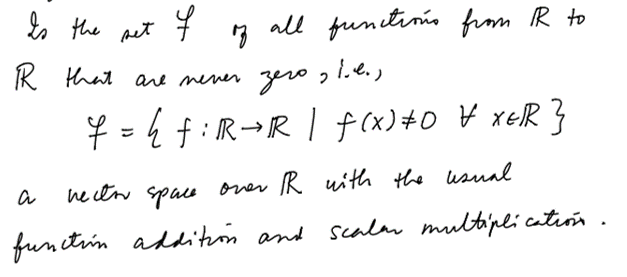 Is the set F of all functions from ℝ to
ℝ that are never zero, i.e.,
F = { f : ℝ → ℝ | f(x) ≠ 0 ∀ x ∈ ℝ }
a vector space over ℝ with the usual
function addition and scalar multiplication.